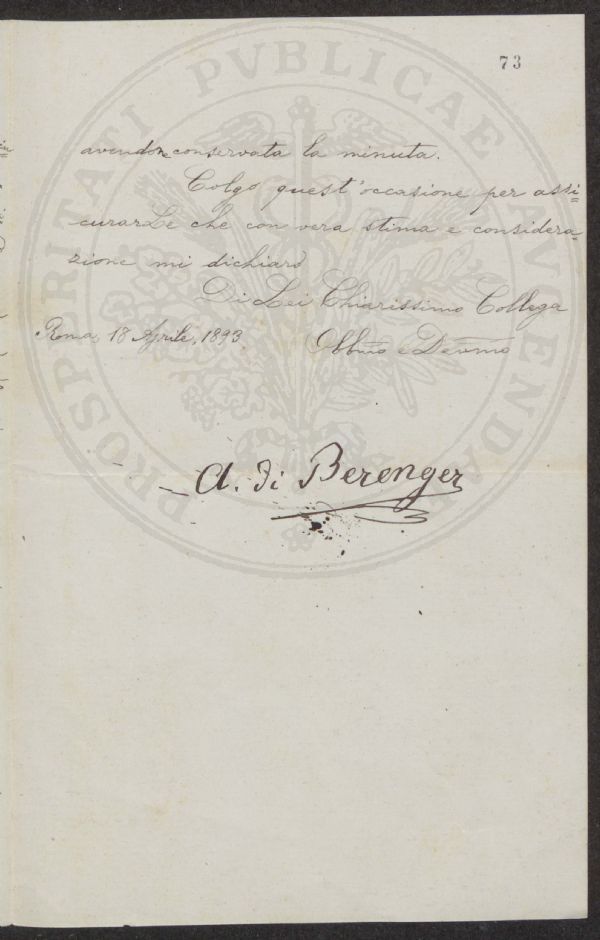 73
avendone conservata la minuta.
Colgo quest'occasione per assi=
curarLe che con vera stima e considera=
zione mi dichiaro
Di Lei Chiarissimo Collega
Roma, 18 Aprile, 1893 Obbmo e Devmo
A. di Berenger
PROSPERITATI PVBLICAE AVGENDAE